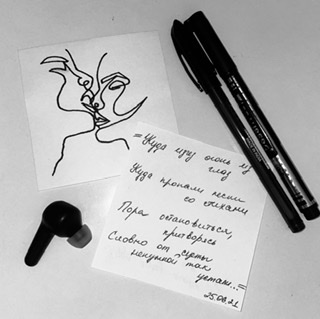 =Куда ушёл огонь из
глаз
Куда пропали песни
со стихами
Пора остановиться,
притворясь
Словно от суеты
ненужной так
устали...=
25.08.21